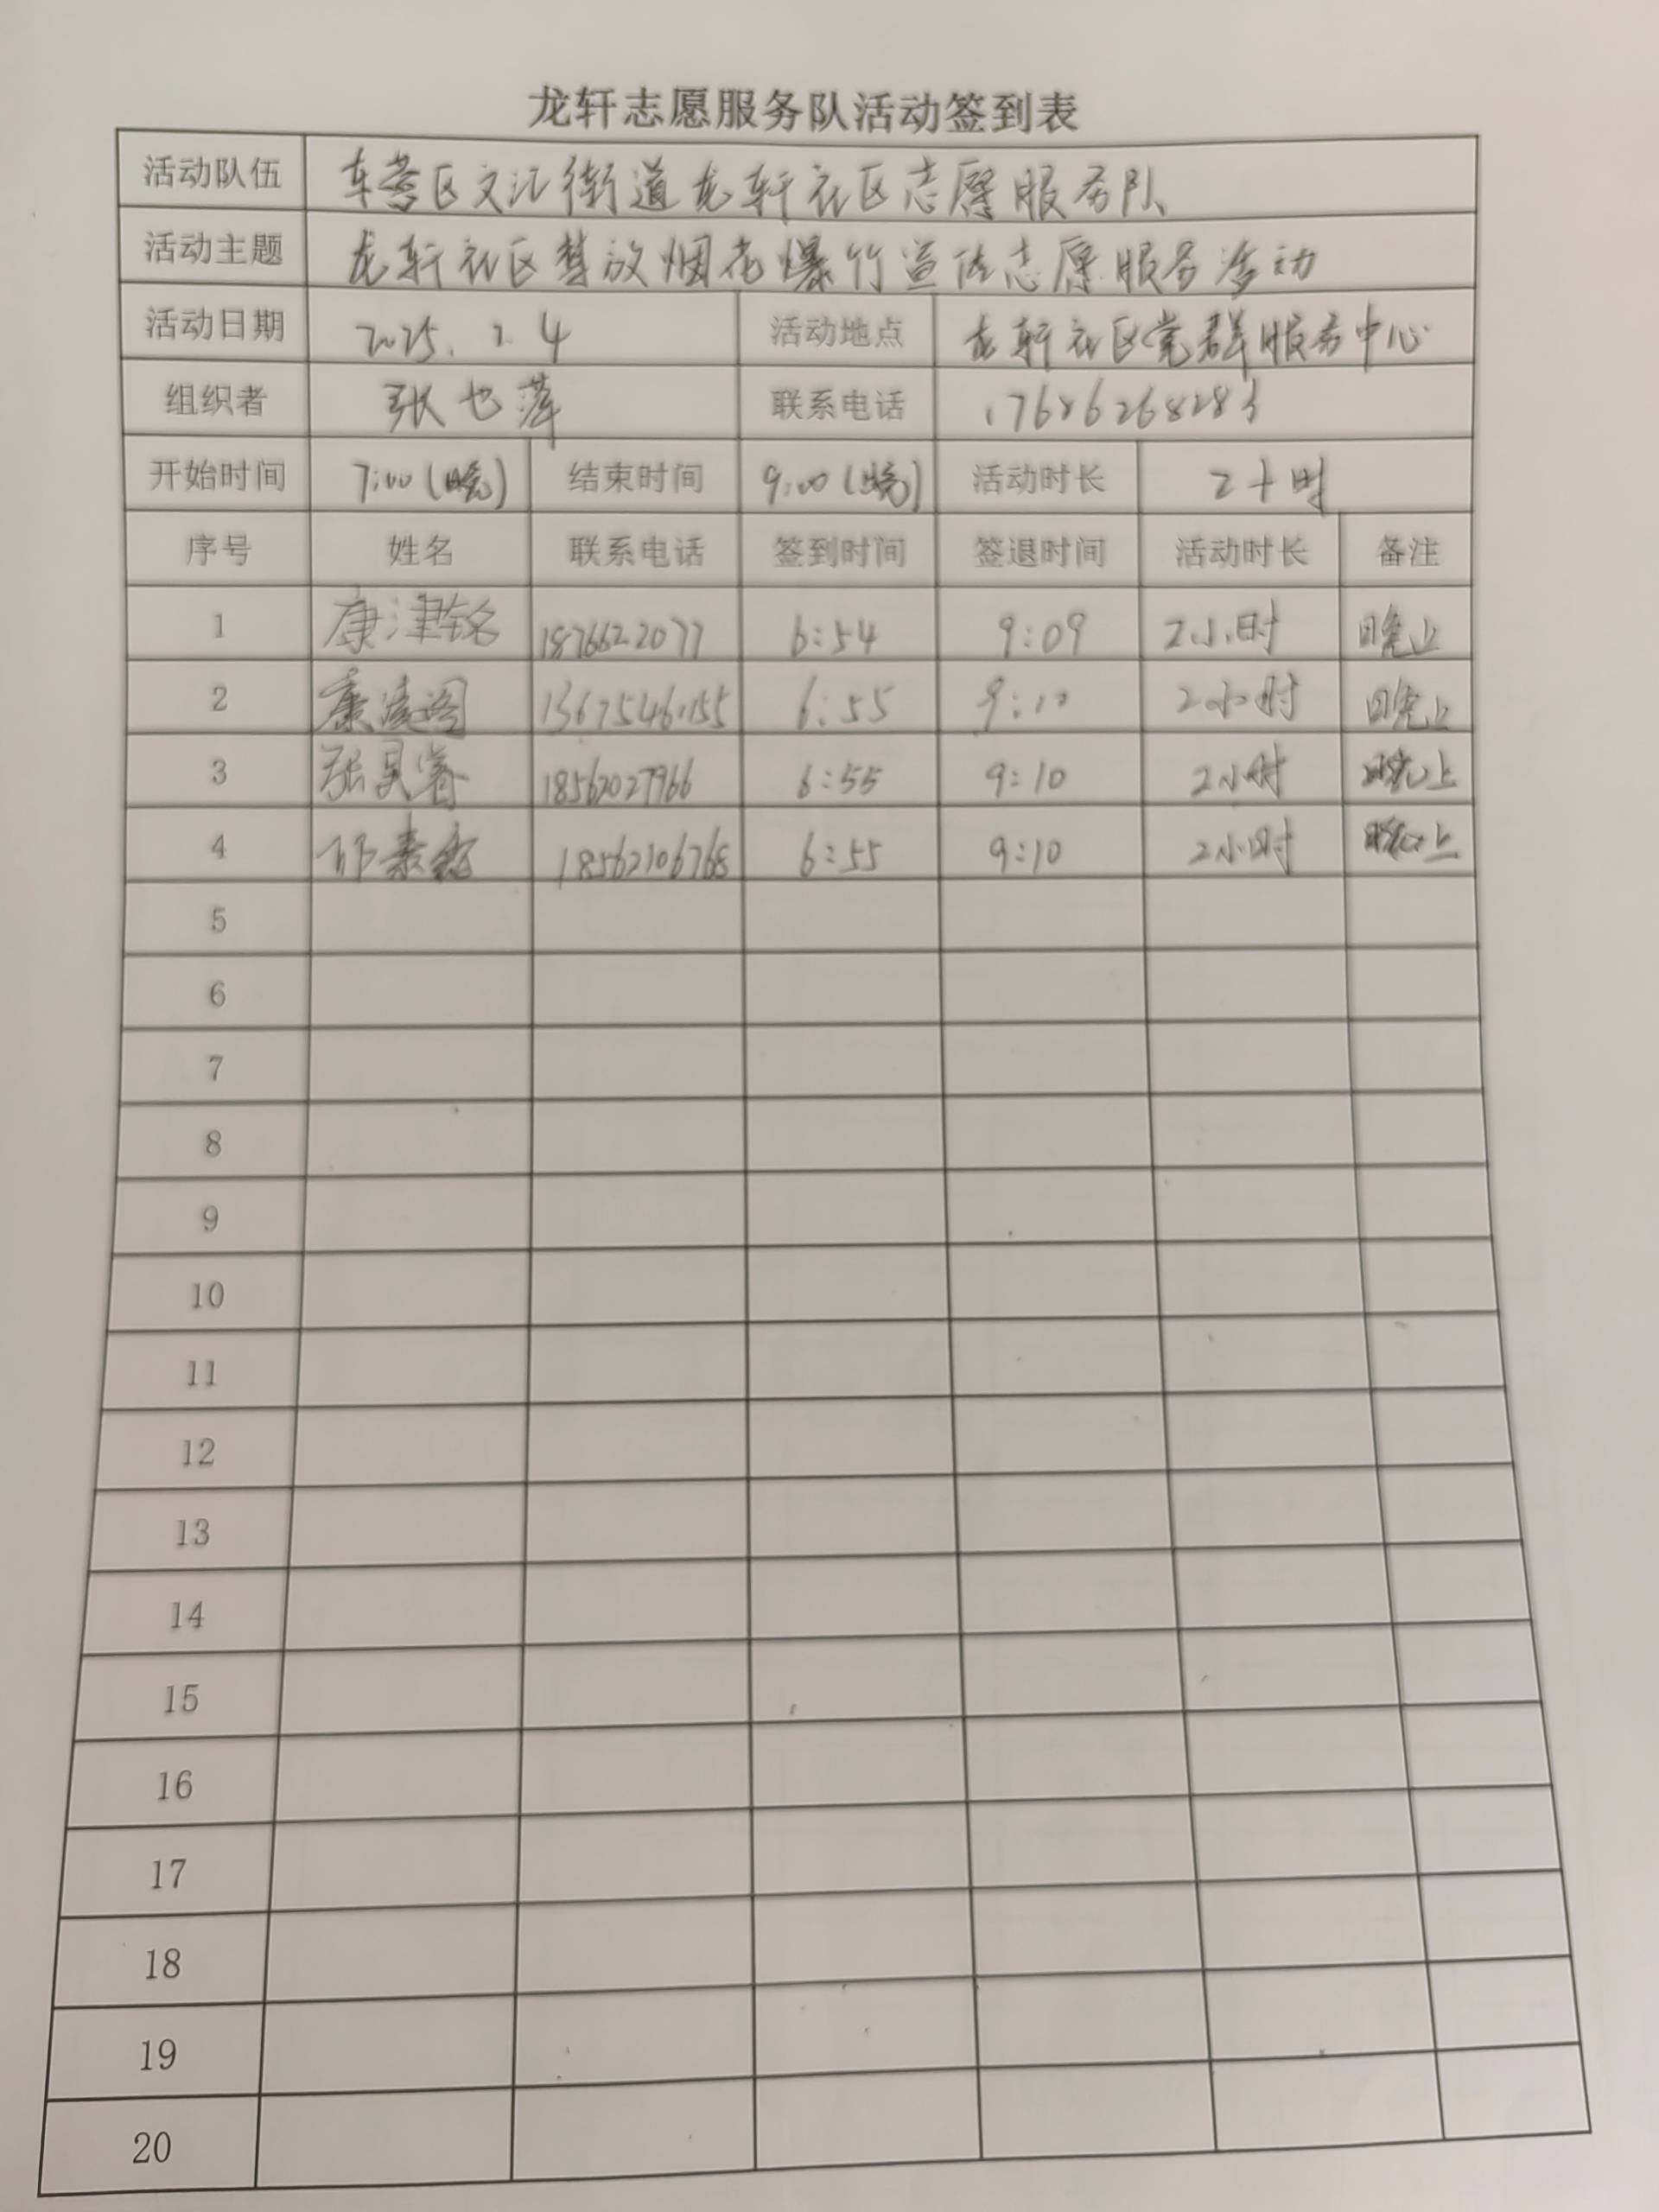 龙轩志愿服务队活动签到表
活动队伍 东营区文汇街道龙轩社区志愿服务队
活动主题 龙轩社区禁放烟花爆竹宣传志愿服务活动
活动日期 2025.2.4 活动地点 龙轩社区党群服务中心
组织者 张也萍 联系电话
开始时间 7:00(晚) 结束时间 9:00(晚) 活动时长 2小时
序号 姓名 联系电话 签到时间 签退时间 活动时长 备注
1 康津铭 6:54 9:09 2小时 晚上
2 康 13675461155 6:55 9:10 2小时 晚上
3 张昊睿 18562027966 6:55 9:10 2小时 晚上
4 18562106768 6:55 9:10 2小时 晚上
5
6
7
8
9
10
11
12
13
14
15
16
17
18
19
20